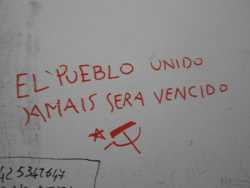 EL PUEBLO UNIDO
JAMAIS SERA VENCIDO